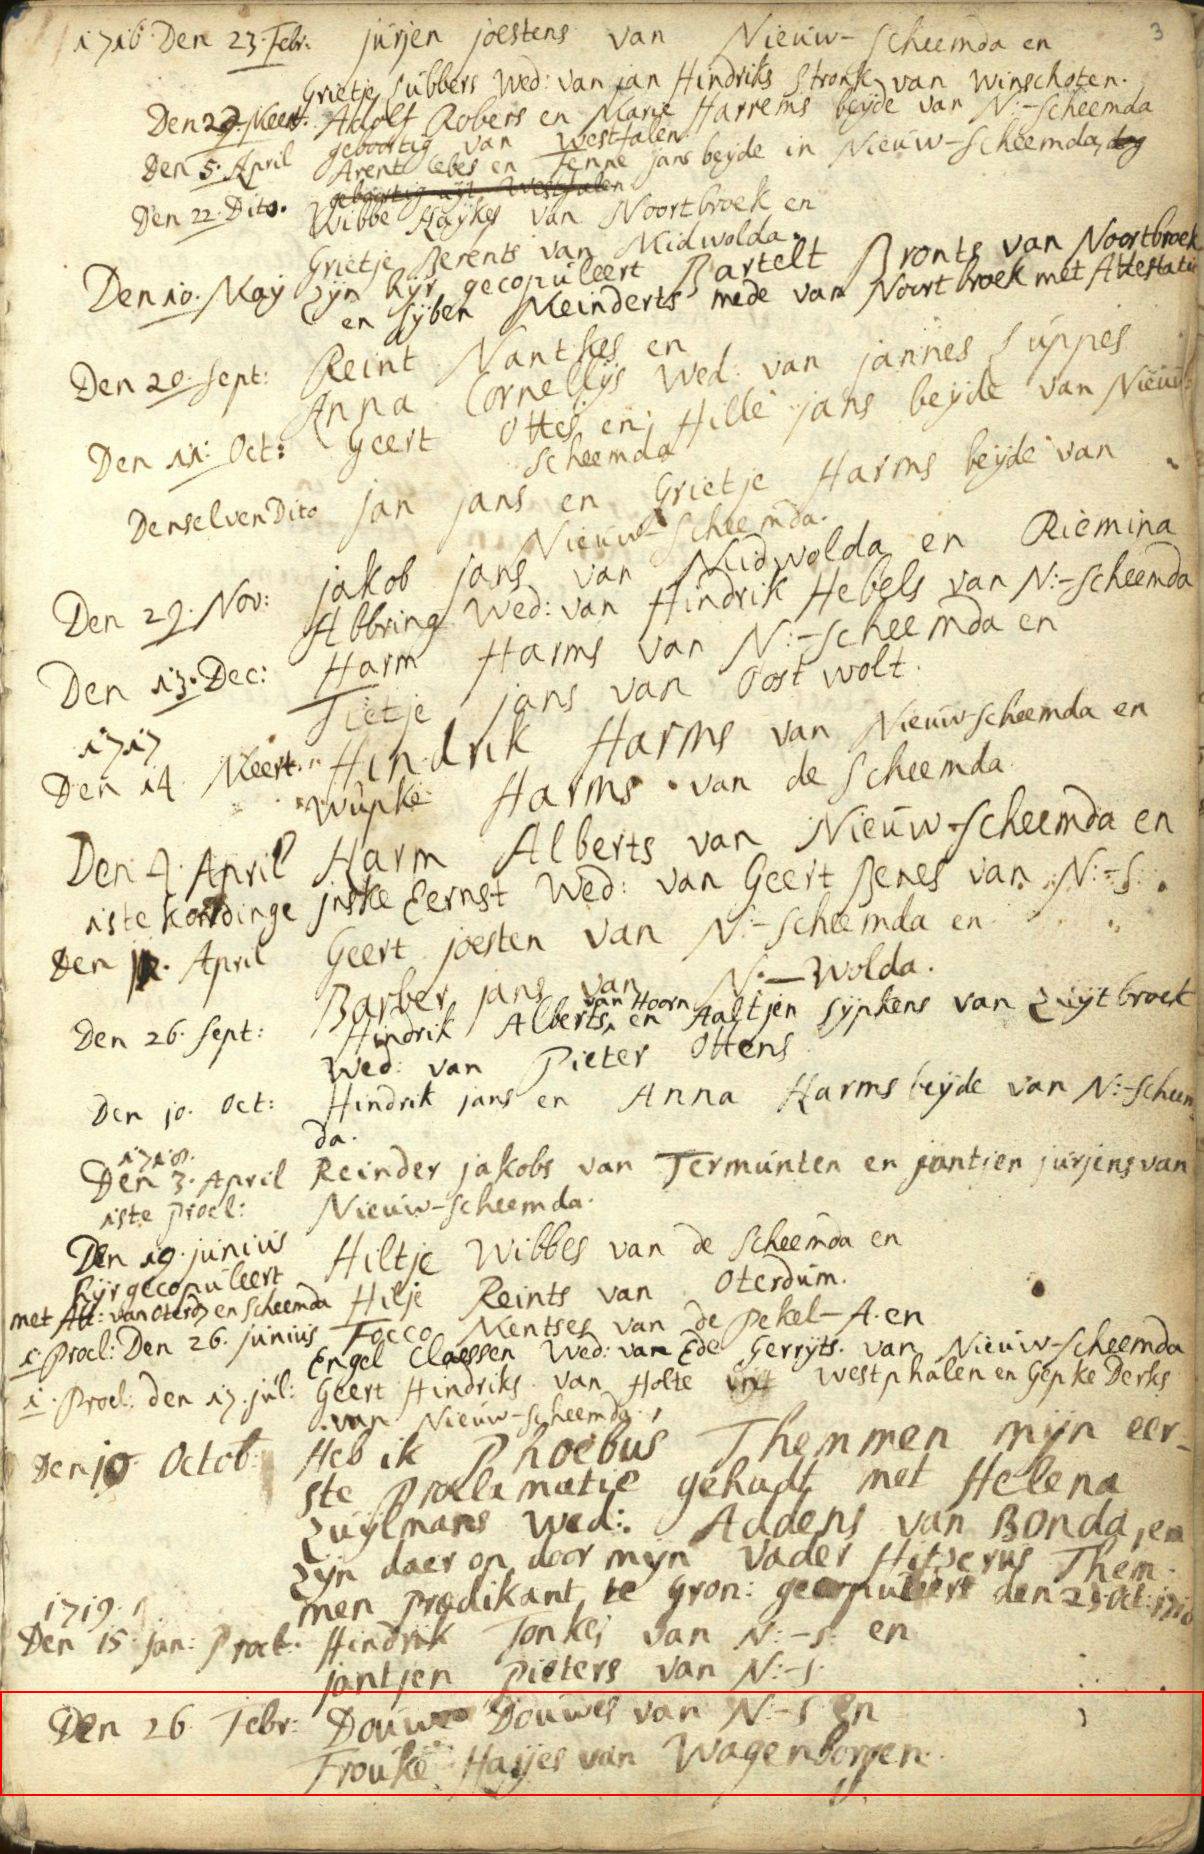 3
1716 Den 23. Febr: jurjen joestens van Nieuw-Scheemda en
Grietje Lubbers Wed: van jan Hindriks Stronk van Winschoten.
Den 29. Meert. Adolf Robers en Marie Harrems beyde van N:-Scheemda
geboortig van Westfalen
Den 5. April Arent Lebes en Jenne jans beyde in Nieuw-Scheemda,
geboortig uijt Westfalen
Den 22. Dito. Wibbe Haykes van Noortbroek en
Grietje Berents van Midwolda.
Den 10. May Zijn hyr gecopuleert Bartelt Bronts van Noortbroek
en Sijben Meinderts mede van Noortbroek met Attestatie
Den 20. Sept: Reint Nantkes en
Anna Cornellijs Wed: van jannes Luppes
Den 11. Oct: Geert Ottes en Hille jans beyde van Nieuw-
Scheemda
Denselven Dito jan jans en Grietje Harms beyde van
Nieuw-Scheemda.
Den 29. Nov: jakob jans van Midwolda en Riemina
Abbring Wed: van Hindrik Hebels van N:-Scheemda
Den 13. Dec: Harm Harms van N:-Scheemda en
Tietje jans van Oostwolt.
1717
Den 14 Meert. Hindrik Harms van Nieuw-Scheemda en
Wupke Harms van de Scheemda
Den 4. April Harm Alberts van Nieuw-Scheemda en
1ste kondinge jnske Eernst Wed: van Geert Benes van N:-S:
Den April Geert joesten van N:-Scheemda en
Barber jans van N:-Wolda.
van Hoorn
Den 26. Sept: Hindrik Alberts en Aaltjen Sijpkens van Zuijtbroek
Wed: van Pieter Ottens
Den 10. Oct: Hindrik jans en Anna Harms beyde van N:-Scheem
da.
1718.
Den 3. April Reinder jakobs van Termunten en jantjen jurjens van
1ste Procl: Nieuw-Scheemda.
Den 19. junius Hiltje Wibbes van de Scheemda en
hijr gecopuleert Hilje Reints van Oterdum.
met Att: van Oterd en Scheemda
1. Procl: Den 26. junius Focco Mentses van de Pekel-A. en
Engel Claessen Wed: van Ede Gerryts. van Nieuw-Scheemda
1. Procl: den 17. jul: Geert Hindriks van Holte uijt Westphalen en Gepke Derks
van Nieuw-Scheemda.
Den 10 Octob: Heb ik Phoebus Themmen mijn eer-
ste Proclamatie gehadt met Helena
Zuijlmans Wed: Addens van Bonda, en
Zijn daer op door mijn Vader Hitzerus Them-
men Predikant te Gron: gecopuleert den 25 Oct: 1718
1719.
Den 15. jan: Procl: Hindrik Tonkes van N:-S: en
jantjen Pieters van N:-S:
Den 26 Febr: Douwe Douwes van N:-S: en
Frouke Hayjes van Wagenborgen.